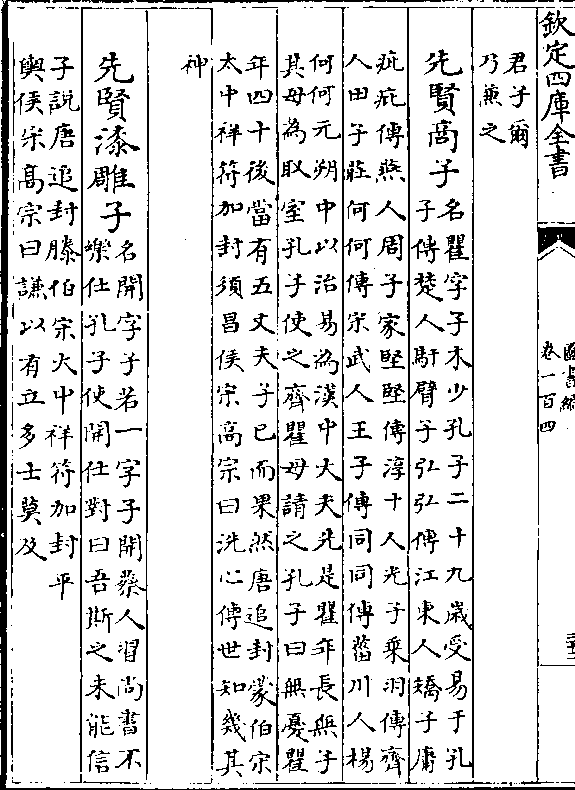 欽定四庫全書
圖書編
卷一百四
君子爾
乃兼之
先賢商子
名瞿字子木少孔子二十九歲受易于孔
子傳楚人馯臂子弘弘傳江東人矯子庸
疵疵傳燕人周子家堅堅傳淳十人光子乗羽傳齊
人田子莊何何傳宋武人王子傳同同傳菑川人楊
何何元朔中以治易為漢中大夫先是瞿年長無子
其母為取室孔子使之齊瞿母請之孔子曰無憂瞿
年四十後當有五丈夫子已而果然唐追封蒙伯宋
太中祥符加封須昌侯宋高宗曰洗心傳世知幾其
神
先賢漆雕子
名開字子若一字子開蔡人習尚書不
樂仕孔子使開仕對曰吾斯之未能信
子說唐追封滕伯宋大中祥符加封平
輿侯宋髙宗曰謙以有立多士莫及